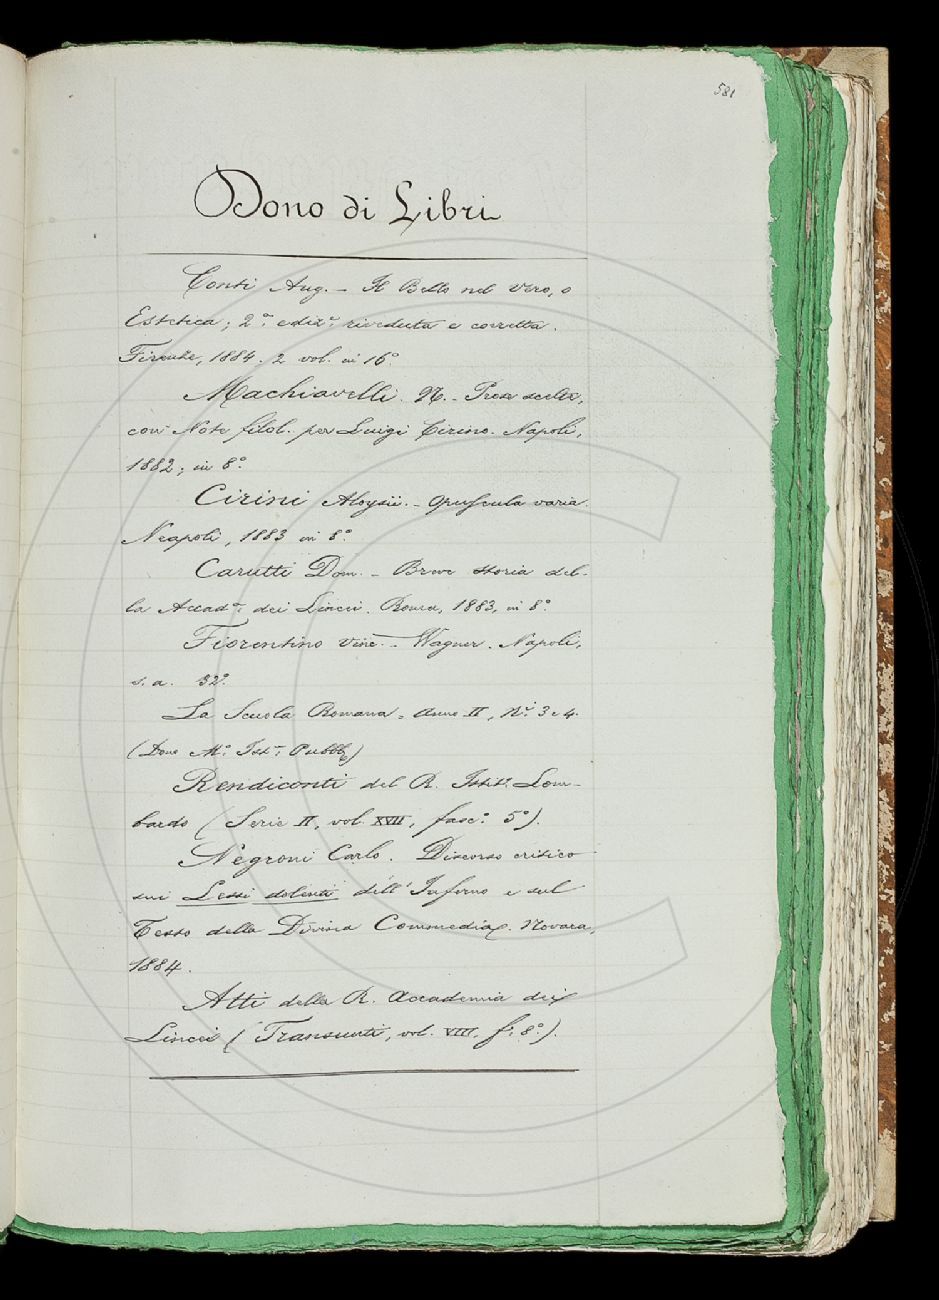 581
Dono di Libri
Conti Aug. - Il Bello nel Vero, o
Estetica; 2.ª ediz.ª riveduta e corretta.
Firenze, 1884. 2 vol. in 16º
Machiavelli. N. - Prose scelte,
con Note filol. per Luigi Cirino. Napoli,
1882; in 8º.
Cirini Aloysii. - Opuscula varia.
Neapoli, 1883 in 8º
Carutti Dom. - Breve storia del-
la Accad.ª dei Lincei. Roma, 1883, in 8º.
Fiorentino Vinc. - Wagner. Napoli,
s. a. 32º.
La Scuola Romana. Anno II, N.i 3 e 4.
(Dono M.º Ist.e Pubb.)
Rendiconti del R. Istit.º Lom-
bardo (Serie II, vol. XVII, fasc.º 5º).
Negroni Carlo. Discorso critico
sui Lessi dolenti dell'Inferno e sul
Testo della Divina Commedia. Novara,
1884.
Atti della R. Accademia dei
Lincei (Transunti, vol. VIII, f.º 8º).